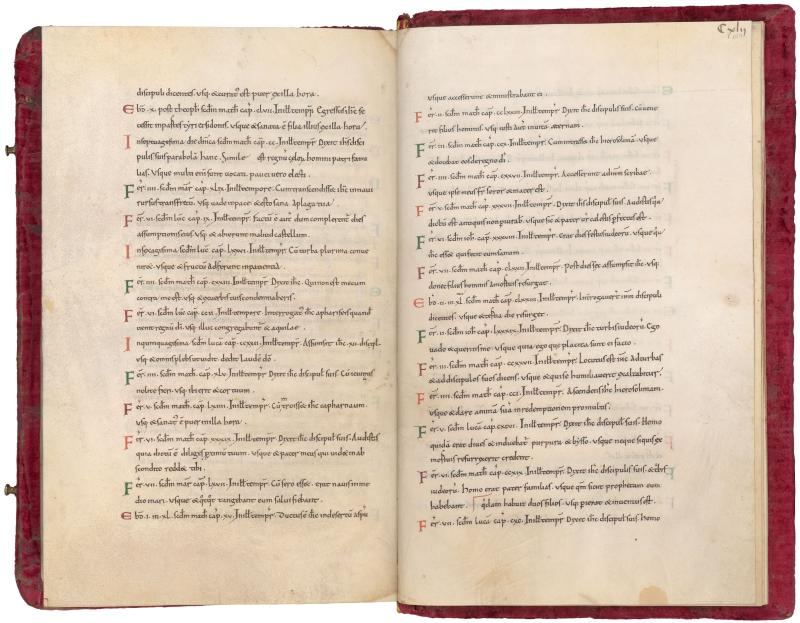 discipuli dicentes. usq; & curat' est puer ex illa hora.
Ebd. x. post theoph. secdm math cap. clvii. In ill tempr. Egressus ihc se
cessit in partes tyri & sidonis. usque & sanata e filia illius ex illa hora.
In septuagesima die dnica secdm math cap. cc. In ill tempr. Dixit ihc disci
pulis suis parabola hanc. Simile est regnu celoru homini patri fami
lias. Usque multi eni sunt uocati. pauci uero electi.
Fer. iiii. secdm mar. cap. xlix. In ill tempore. Cum transcendisset ihc in naui
rursus transfretu. usq; uade in pace & esto sana a plaga tua.
Fer. vi. secdm luc. cap. ix. In ill tempr. Factu e aut dum complerent dies
assumptionis eius. usq; & abierunt in aliud castellum.
In sexagesima. secdm luc. cap. lxxvi. In ill tempr. Cu turba plurima conue
niret. usque & fructum adferunt in patientia.
Fer. iiii. secdm math. cap. cxxii. In ill tempr. Dixit ihc. Qui non est mecum
contra me est. usq; & ex uerbis tuis condemnaberis.
Fer. vi. secdm luc. cap. ccii. In ill tempore. Interrogat' ihc a pharisaeis quand
uenit regnu di. usq; illuc congregabunt & aquilae.
In quinquagesima secdm luca cap. ccxiii. In ill tempr. Assumsit ihc xii. discipl.
usq; & omnis plebs ut uidit dedit laude do.
Fer. iiii. secdm math. cap. xlv. In ill tempr. Dixit ihc discipul suis. Cu ieiunatis
nolite fieri. usq; ibi erit & cor tuum.
Fer. v. secdm math. cap. lxiiii. In ill tempr. Cu introisset ihc capharnaum.
usq; & sanat' e puer in illa hora.
Fer. vi. secdm math. cap. xxxix. In ill tempr. Dixit ihc discipul suis. Audistis
quia dictu e diliges proximu tuum. usque & pater meus qui uidet in ab
scondito reddet tibi.
Fer. vii. secdm mar. cap. lxvii. In ill tempr. Cu sero esset. erat nauis in me
dio mari. usque & quotquot tangebant eum salui fiebant.
Ebd. i. in xl. secdm math. cap. xv. In ill tempr. Ductus e ihc in desertu a spu
Cxlii
usque accesserunt & ministrabant ei.
Fer. ii. secdm math. cap. cclxxiii. In ill tempr. Dixit ihc discipul suis. Cu uene
rit filius hominis. Usq; iusti aut in uita aeternam.
Fer. iii. secdm math. cap. ccx. In ill tempr. Cum intrasset ihc hierosolima. usque
& docebat eos de regno di.
Fer. iiii. secdm math. cap. cxxvii. In ill tempr. Accesserunt ad ihm scribae.
usque ipse meus fr soror & mater est.
Fer. v. secdm math. cap. xxxvi. In ill tempr. Dixit ihc discipul suis. Audistis qa
dictu est antiquis non putab. usque sic & pater ur caelestis pfectus est.
Fer. vi. secdm ioh. cap. xxxviii. In ill tempr. Erat dies festus iudeoru. usque qa
ihc esset qui fecit eum sanum.
Fer. vii. secdm math. cap. clxxii. In ill tempr. Post dies sex assumpsit ihc. usq;
donec filius hominis a mortuis resurgat.
Ebd. ii. in xl. secdm math. cap. clxxiii. In ill tempr. Interrogauer ihm discipuli
dicentes. usque & tertia die resurget.
Fer. ii. secdm ioh. cap. lxxxix. In ill tempr. Dixit ihc turbis iudeoru. Ego
uado & quaeritis me. usque quia ego que placita sunt ei facio.
Fer. iii. secdm math. cap. ccxxvii. In ill tempr. Locutus est ihc ad turbas
& ad discipulos suos dicens. usque & qui se humiliauerit exaltabitur.
Fer. iiii. secdm math. cap. cci. In ill tempr. Ascendens ihc hierosolimam.
usque & dare anima sua in redemptione pro multis.
Fer. v. secdm luca cap. cxcvi. In ill tempr. Dixit ihc discipul suis. Homo
quida erat diues & induebat purpura & bysso. usque neque si quis ex
mortuis resurrexerit credent.
Fer. vi. secdm math. cap. ccxix. In ill tempr. Dixit ihc discipulis suis. & turbis
iudeoru. Homo erat pater familias. usque qm sicut prophetam eum
habebant. quidam habuit duos filios. usq; perierat & inuentus est.
Fer. vii. secdm luca. cap. cxc. In ill tempr. Dixit ihc discipul suis. Homo